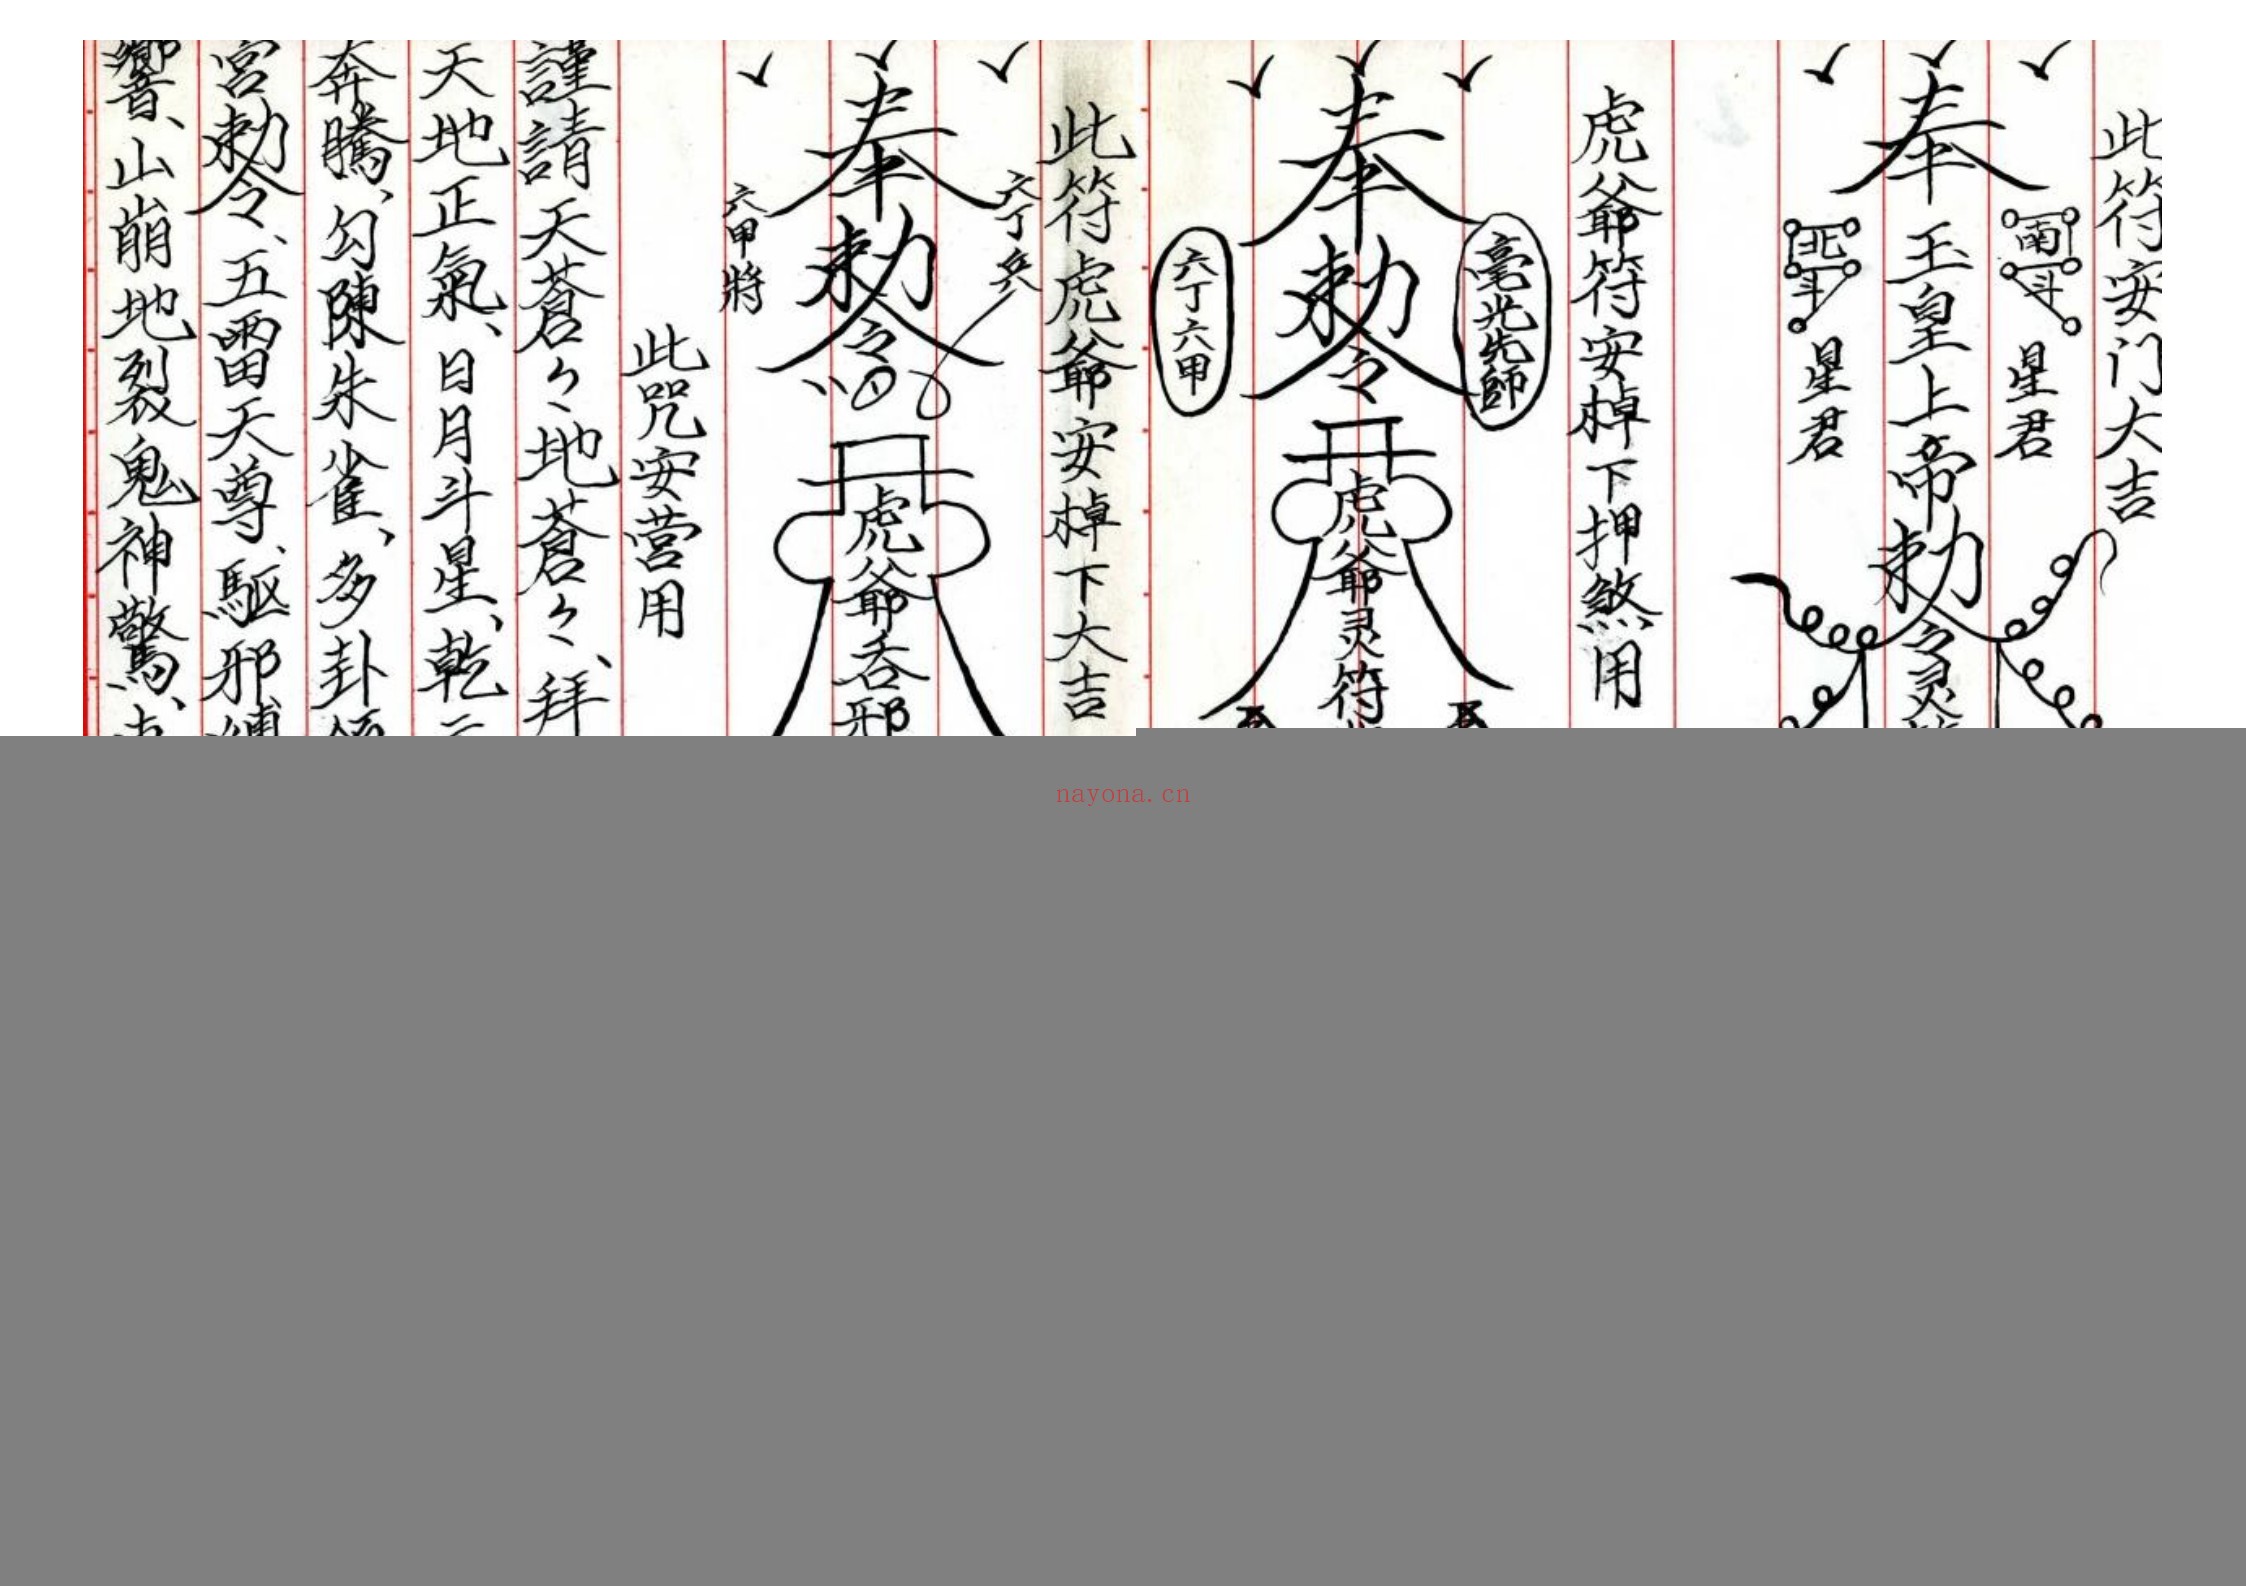 此符安门大吉
南斗
星君
奉玉皇上帝勅令灵
北斗
星君
虎爺符安棹下押煞用
毫光先師
奉勅令
虎爺灵符
六丁六甲
此符虎爺安棹下大吉
六丁兵
奉勅令
虎爺吞邪
六甲將
此咒安营用
謹請天蒼々地蒼々、拜
天地正氣、日月斗星、乾
奔騰、勾陳朱雀、多卦
宮勅令、五雷天尊、駆邪縛
響、山崩地裂鬼神驚、
nayona.cn